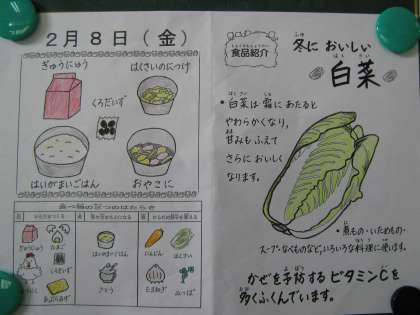 2月8日(金)
ぎゅうにゅう
はくさいのにつけ
くろだいず
はいがまいごはん
おやこに
食べ物の三つのはたらき
ぎゅうにゅう
たまご
くろだいず
とりにく
あぶらあげ
はいがまいごはん
さとう
にんじん
はくさい
たまねぎ
みつば
食品紹介
冬に おいしい
はくさい
白菜
・白菜は 霜に あたると
やわらかくなり,
甘みも ふえて
さらに おいしく
なります。
・煮もの・いためもの・
スープ・なべものなど,いろいろな料理に使います。
かぜを予防する ビタミンCを
多くふくんでいます。